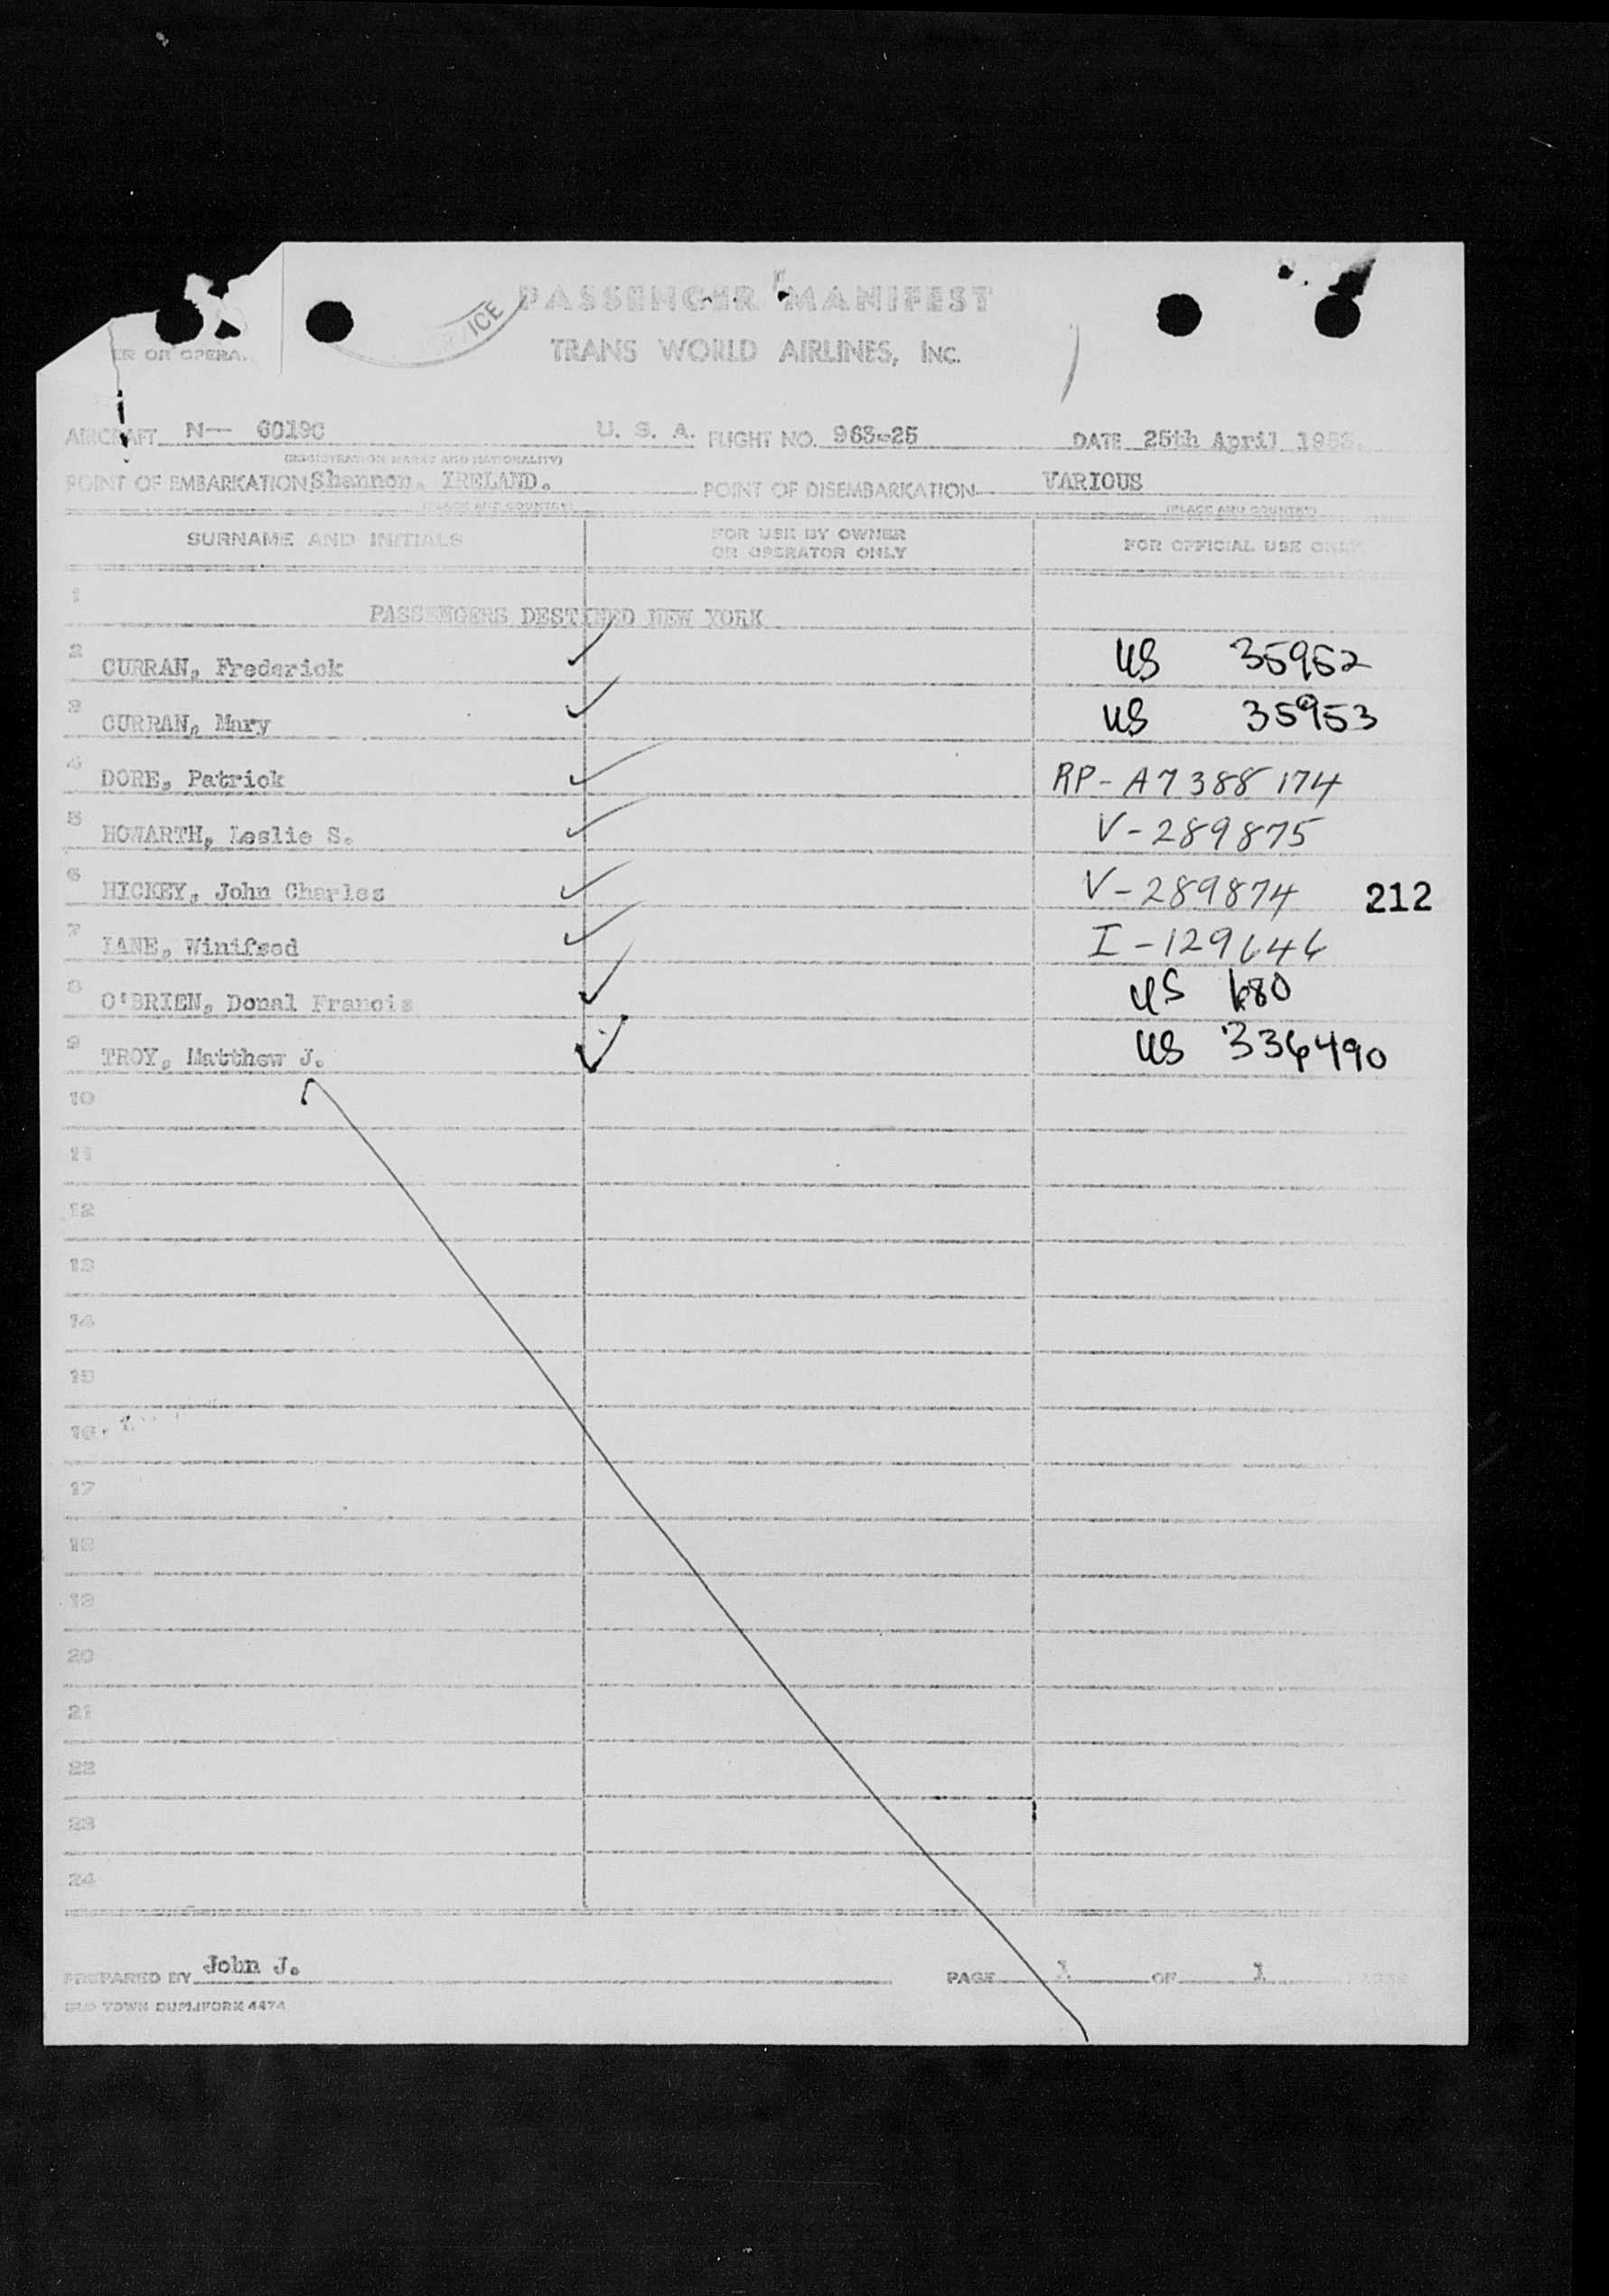 ICE
PASSENGER MANIFEST
TRANS WORLD AIRLINES, INC.
ER OR OPERA
AIRCRAFT N-- 6019C U. S. A. FLIGHT NO. 963-25 DATE 25th April 195
(REGISTRATION MARKS AND NATIONALITY)
POINT OF EMBARKATION Shannon. IRELAND. POINT OF DISEMBARKATION VARIOUS
(PLACE AND COUNTRY) (PLACE AND COUNTRY)
SURNAME AND INITIALS FOR USE BY OWNER OR OPERATOR ONLY FOR OFFICIAL USE ONLY
1 PASSENGERS DESTINED NEW YORK
2 CURRAN, Frederick US 35952
3 CURRAN, Mary US 35953
4 DORE, Patrick RP-A7388174
5 HOWARTH, Leslie S. V-289875
6 HICKEY, John Charles V-289874 212
7 LANE, Winifred I-129646
8 O'BRIEN, Donal Francis US 680
9 TROY, Matthew J. US 336490
10
11
12
13
14
15
16
17
18
19
20
21
22
23
24
PREPARED BY John J. PAGE 1 OF 1 PAGES
OLD TOWN DUPLIFORM 4474